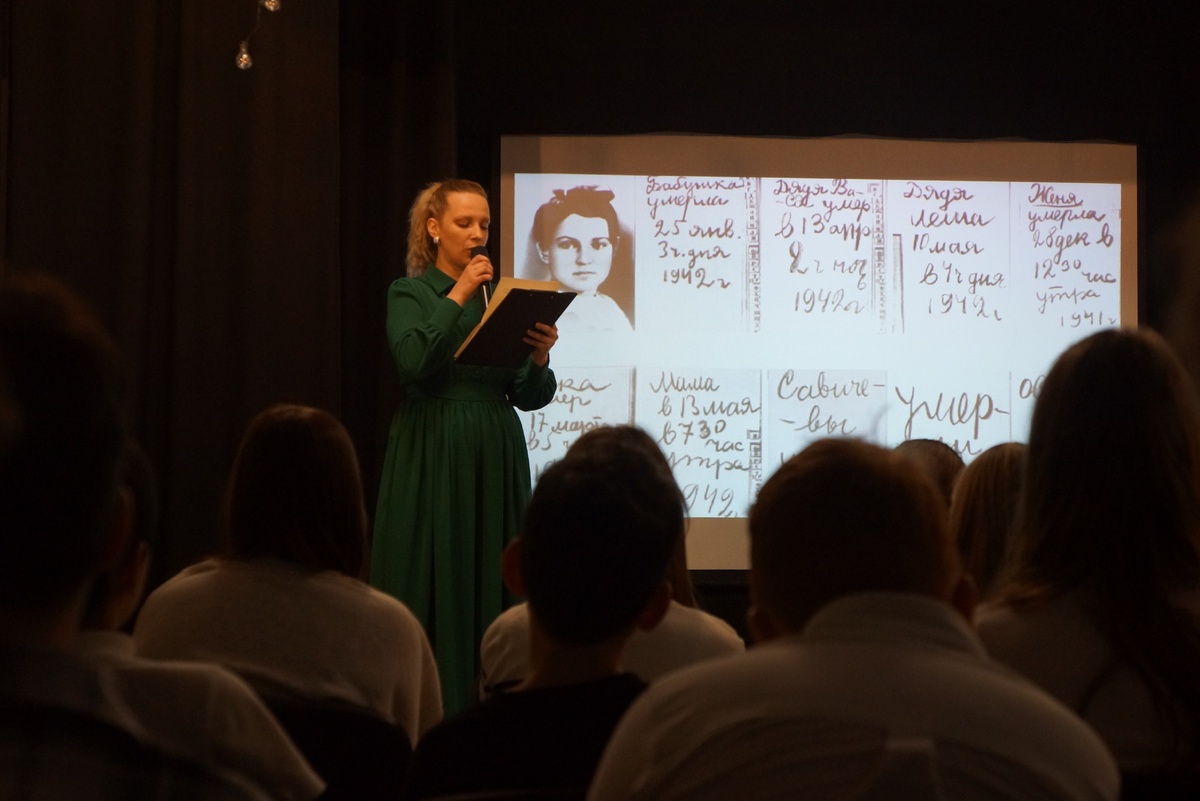 Бабушка
умерла
25 янв.
3 ч. дня
1942 г
Дядя Ва-
-ся умер
в 13 апр
2 ч ноч
1942 г
Дядя
Леша
10 мая
в 4 ч дня
1942 г
Женя
умерла
28 дек в
12 30 час
утра
1941 г
17 март
Мама
в 13 мая
в 7 30
час
утра
1942
Савиче-
-вы
умер-